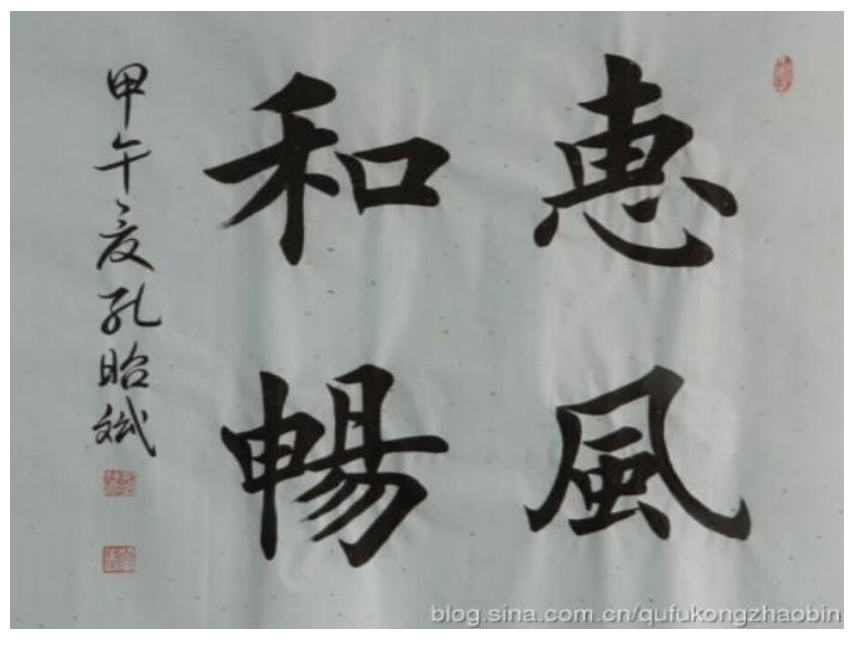 惠風
和暢
甲午夏孔昭斌
blog.sina.com.cn/qufukongzhaobin